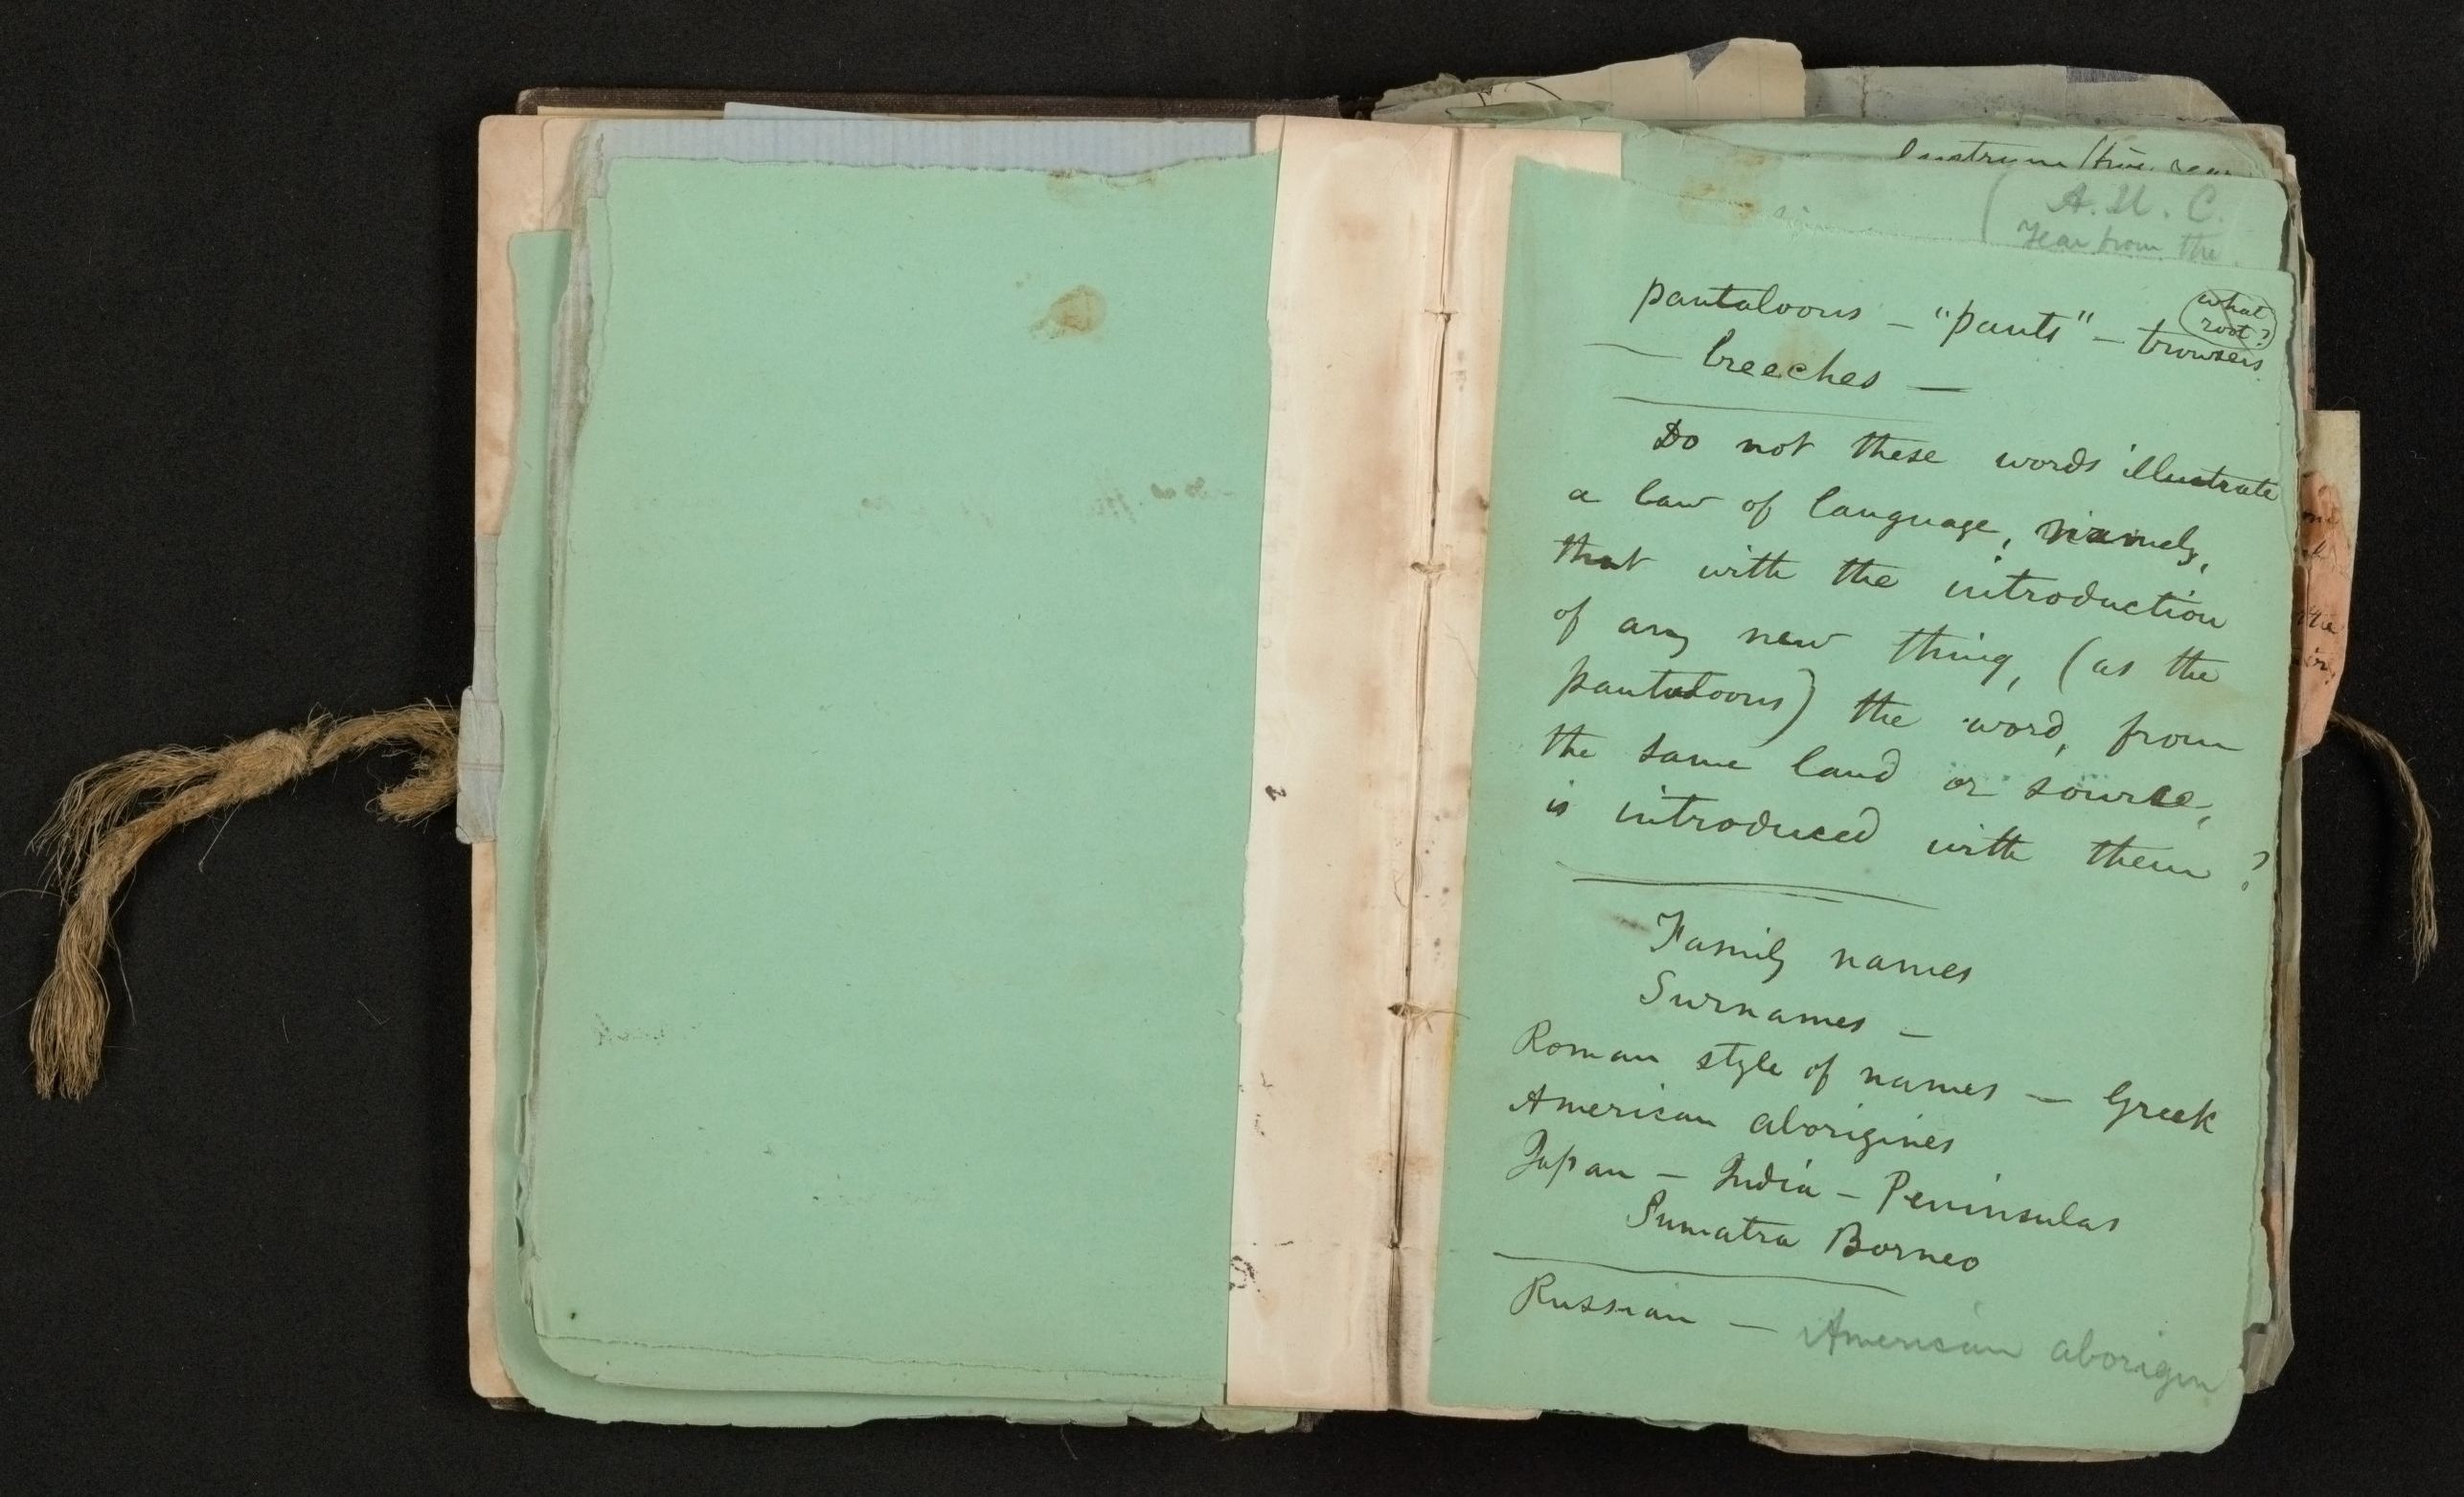 lustrum (five years
(A. U. C.
Year from the
what
root?
pantaloons — "pants" — trowsers
— breeches —
Do not these words illustrate
a law of language, namely,
that with the introduction
of any new thing, (as the
pantaloons) the word, from
the same land or source,
is introduced with them?
Family names
Surnames —
Roman style of names — Greek
American aborigines
Japan — India — Peninsulas
Sumatra Borneo
Russian — American aborigin